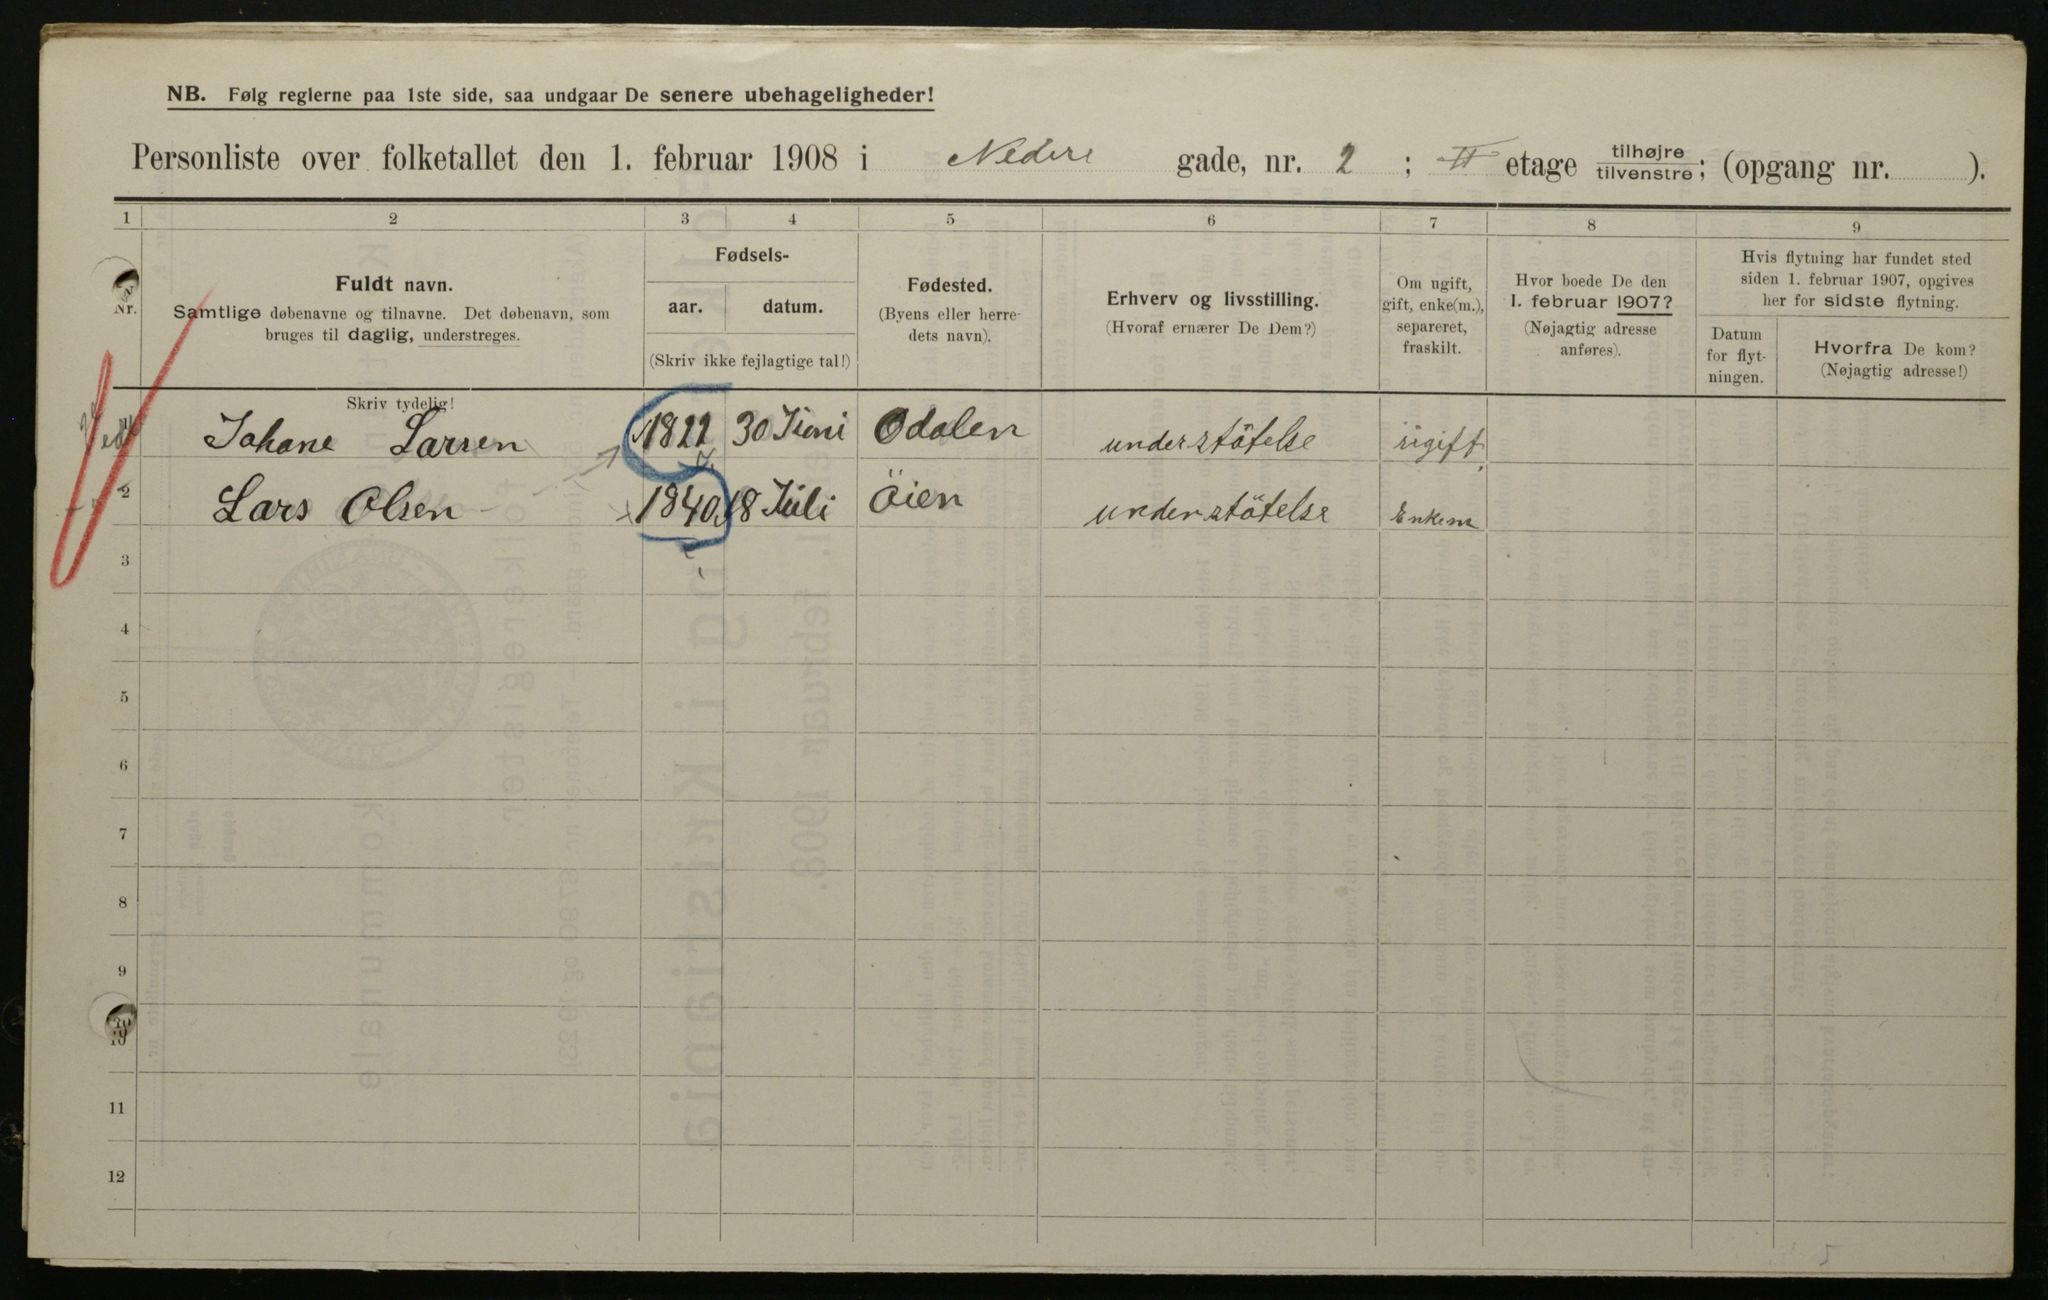 NB. Følg reglerne paa 1ste side, saa undgaar De senere ubehageligheder!
Personliste over folketallet den 1. februar 1908 i Nedre gade, nr. 2 ; II etage tilhøjre tilvenstre; (opgang nr. ).
1 2 3 4 5 6 7 8 9
Nr.
Fuldt navn.
Samtlige døbenavne og tilnavne. Det døbenavn, som
bruges til daglig, understreges.
Fødsels-
aar. datum.
(Skriv ikke fejlagtige tal!)
Fødested.
(Byens eller herre-
dets navn).
Erhverv og livsstilling.
(Hvoraf ernærer De Dem?)
Om ugift,
gift, enke(m.),
separeret,
fraskilt.
Hvor boede De den
1. februar 1907?
(Nøjagtig adresse
anføres).
Hvis flytning har fundet sted
siden 1. februar 1907, opgives
her for sidste flytning.
Datum
for flyt-
ningen.
Hvorfra De kom?
(Nøjagtig adresse!)
Skriv tydelig!
Johane Larsen 1822 30 Juni Odalen understötelse ugift
2 Lars Olsen 1840 18 Juli Öien understötelse Enkem
3
4
5
6
7
8
9
10
11
12